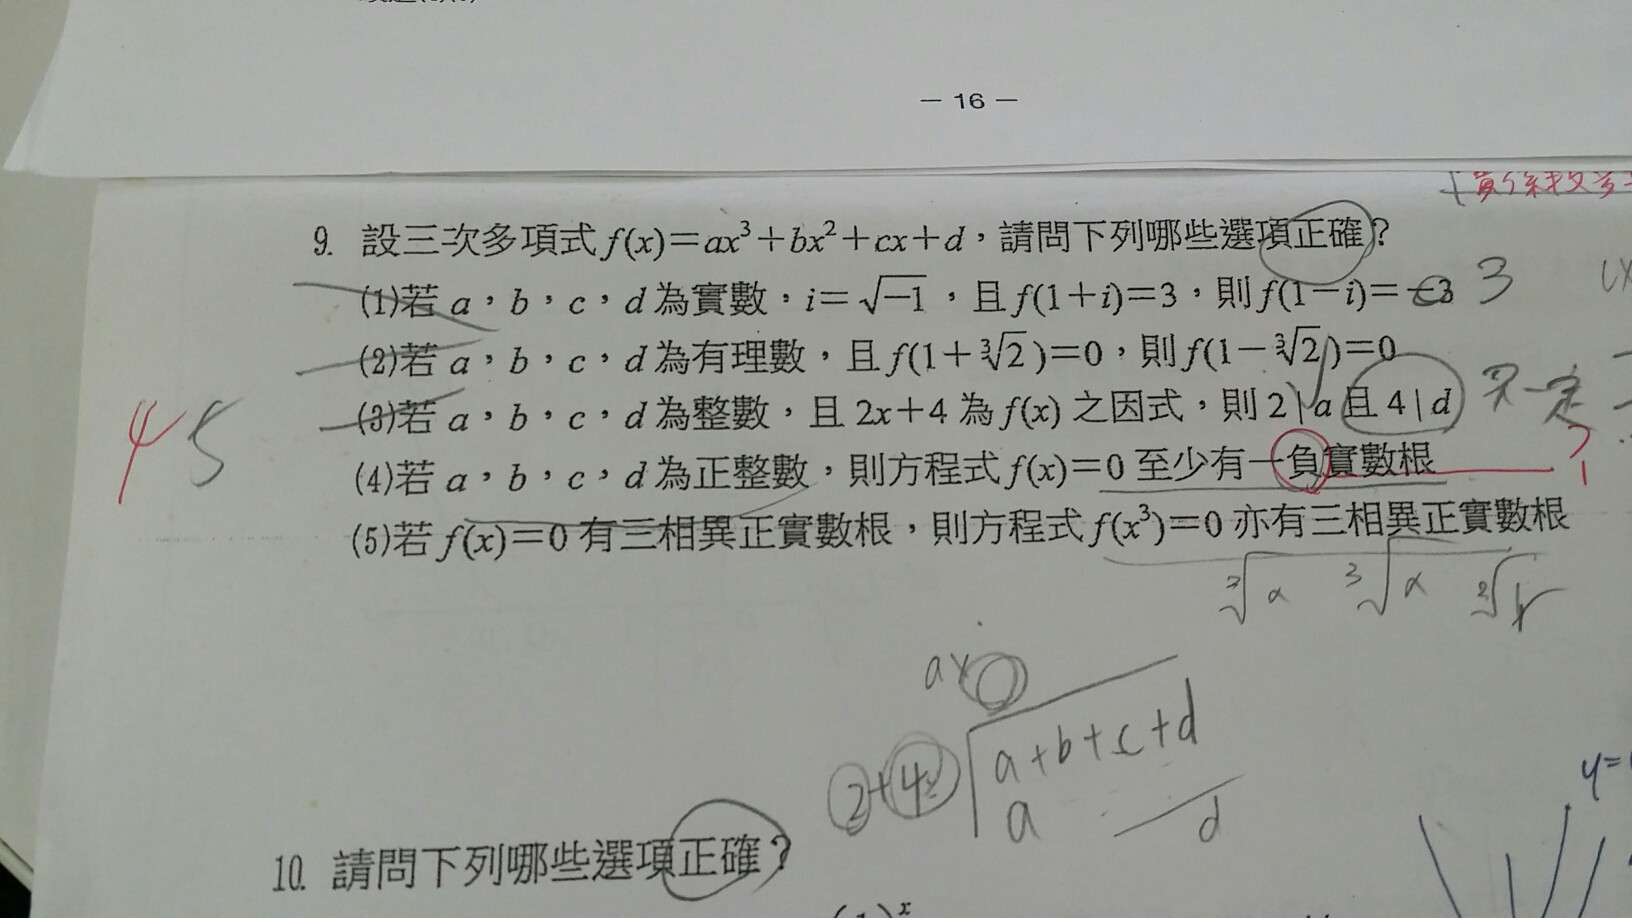 — 16 —
9. 設三次多項式 f(x)=ax³+bx²+cx+d，請問下列哪些選項正確？
(1)若 a，b，c，d 為實數，i=√-1，且 f(1+i)=3，則 f(1-i)=-3 3
(2)若 a，b，c，d 為有理數，且 f(1+∛2)=0，則 f(1-∛2)=0
(3)若 a，b，c，d 為整數，且 2x+4 為 f(x) 之因式，則 2|a 且 4|d 不一定
45
(4)若 a，b，c，d 為正整數，則方程式 f(x)=0 至少有一負實數根 ?
(5)若 f(x)=0 有三相異正實數根，則方程式 f(x³)=0 亦有三相異正實數根
∛α ∛α
ax
2+4 a+b+c+d
a d
y=
10. 請問下列哪些選項正確？